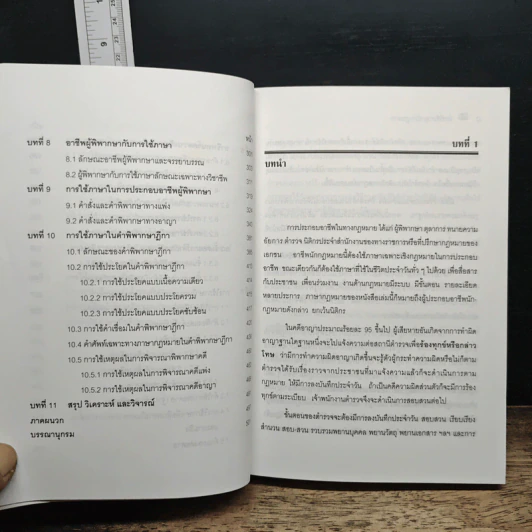 หน้า
บทที่ 8 อาชีพผู้พิพากษากับการใช้ภาษา
8.1 ลักษณะอาชีพผู้พิพากษาและจรรยาบรรณ
8.2 ผู้พิพากษากับการใช้ภาษาลักษณะเฉพาะทางวิชาชีพ
บทที่ 9 การใช้ภาษาในการประกอบอาชีพผู้พิพากษา
9.1 คำสั่งและคำพิพากษาทางแพ่ง
9.2 คำสั่งและคำพิพากษาทางอาญา
บทที่ 10 การใช้ภาษาในคำพิพากษาฎีกา
10.1 ลักษณะของคำพิพากษาฎีกา
10.2 การใช้ประโยคในคำพิพากษาฎีกา
10.2.1 การใช้ประโยคแบบเนื้อความเดียว
10.2.2 การใช้ประโยคแบบประโยครวม
10.2.3 การใช้ประโยคแบบประโยคซับซ้อน
10.3 การใช้คำเชื่อมในคำพิพากษาฎีกา
10.4 คำศัพท์เฉพาะทางกฎหมายในคำพิพากษาฎีกา
10.5 การใช้เหตุผลในการพิจารณาพิพากษาคดี
10.5.1 การใช้เหตุผลในการพิจารณาคดีแพ่ง
10.5.2 การใช้เหตุผลในการพิจารณาคดีอาญา
บทที่ 11 สรุป วิเคราะห์ และวิจารณ์
ภาคผนวก
บรรณานุกรม
บทที่ 1
บทนำ
การประกอบอาชีพในทางกฎหมาย ได้แก่ ผู้พิพากษา ตุลาการ ทนายความ
อัยการ ตำรวจ นิติกรประจำสำนักงานของทางราชการหรือที่ปรึกษากฎหมายของ
เอกชน อาชีพนักกฎหมายนี้ต้องใช้ภาษาเฉพาะเชิงกฎหมายในการประกอบ
อาชีพ ขณะเดียวกันก็ต้องใช้ภาษาที่ใช้ในชีวิตประจำวันทั่ว ๆ ไปด้วย เพื่อสื่อสาร
กับประชาชน เพื่อนร่วมงาน งานด้านกฎหมายมีระบบ มีขั้นตอน รายละเอียด
หลายประการ ภาษากฎหมายของหนังสือเล่มนี้ก็หมายถึงผู้ประกอบอาชีพนัก
กฎหมายดังกล่าว ยกเว้นนิติกร
ในคดีอาญาประมาณร้อยละ 95 ขึ้นไป ผู้เสียหายอันเกิดจากการทำผิด
อาญาฐานใดฐานหนึ่งจะไปแจ้งความต่อสถานีตำรวจเพื่อร้องทุกข์หรือกล่าว
โทษ ว่ามีการทำความผิดอาญาเกิดขึ้นจะรู้ตัวผู้กระทำความผิดหรือไม่ก็ตาม
ตำรวจได้รับเรื่องราวจากประชาชนที่มาแจ้งความแล้วก็จะดำเนินการตาม
กฎหมาย ให้มีการลงบันทึกประจำวัน ถ้าเป็นคดีความผิดส่วนตัวก็จะมีการร้อง
ทุกข์ตามระเบียบ เจ้าพนักงานตำรวจจึงจะดำเนินการสอบสวนต่อไป
ขั้นตอนของตำรวจจะต้องมีการลงบันทึกประจำวัน สอบสวน เรียบเรียง
สำนวน สอบ-สวน รวบรวมพยานบุคคล พยานวัตถุ พยานเอกสาร ฯลฯ และการ